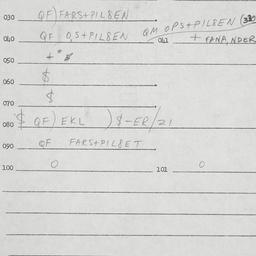 030 QF) FARS+PILSEN
040 QF O,S+PILSEN QM OPS+PILSEN
041 + FANA, NDER
050 +
060 $
070 $
080 $ QF) EKL ) $-ER/21
090 QF FARS+PILSET
100 0 101 0